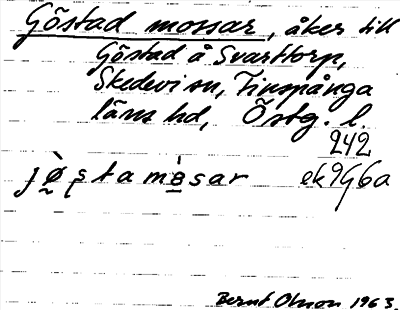 Göstad mossar, åker till
Göstad å Svarttorp,
Skedevi sn, Finspånga
läns hd, Östg. l.
242
jø̀stamòsar ek 9G6a
Bernt Olsson 1963.